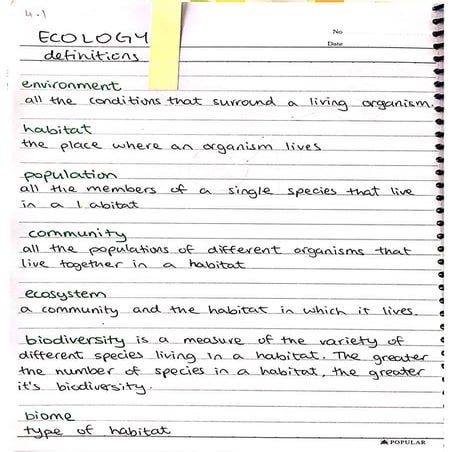 4.1
ECOLOGY
definitions
No
Date
environment
all the conditions that surround a living organism.
habitat
the place where an organism lives
population
all the members of a single species that live
in a habitat
community
all the populations of different organisms that
live together in a habitat
ecosystem
a community and the habitat in which it lives.
biodiversity is a measure of the variety of
different species living in a habitat. The greater
the number of species in a habitat, the greater
it's biodiversity.
biome
type of habitat
POPULAR